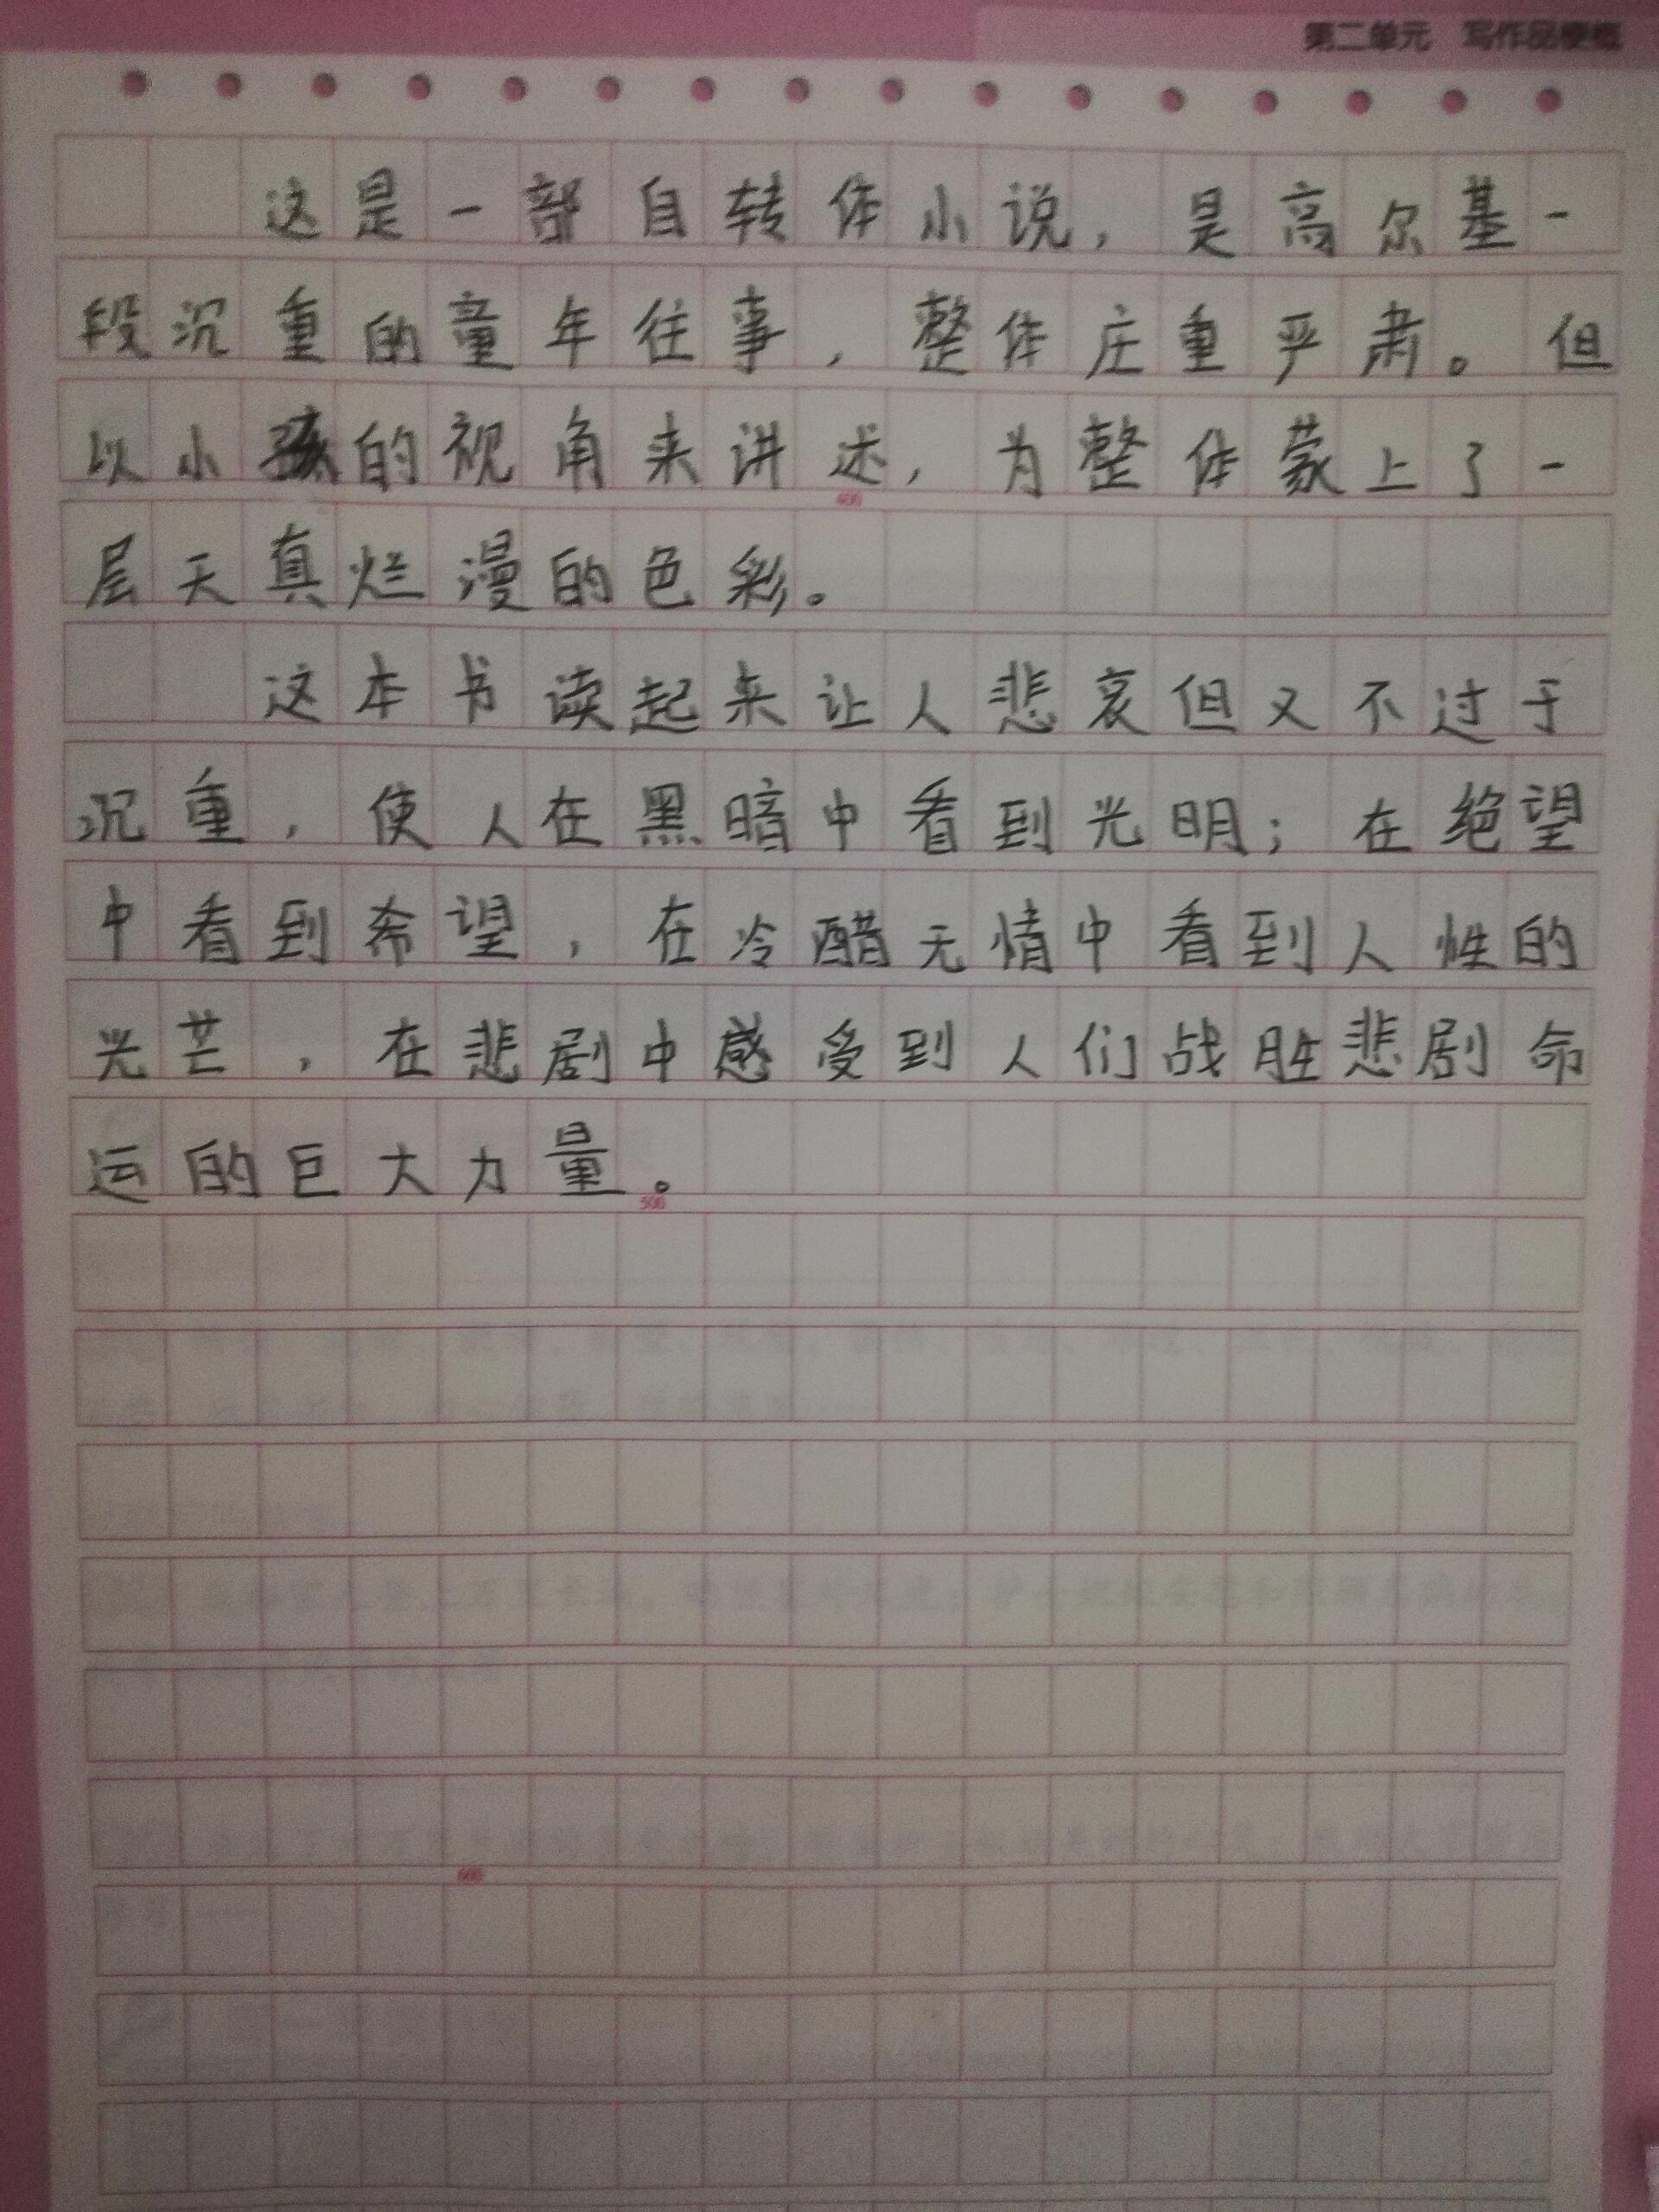 第二单元 写作品梗概
这是一部自转体小说，是高尔基一
段沉重的童年往事，整体庄重严肃。但
以小孩的视角来讲述，为整体蒙上了一
400
层天真烂漫的色彩。
这本书读起来让人悲哀但又不过于
沉重，使人在黑暗中看到光明；在绝望
中看到希望，在冷醋无情中看到人性的
光芒，在悲剧中感受到人们战胜悲剧命
运的巨大力量。
500
600